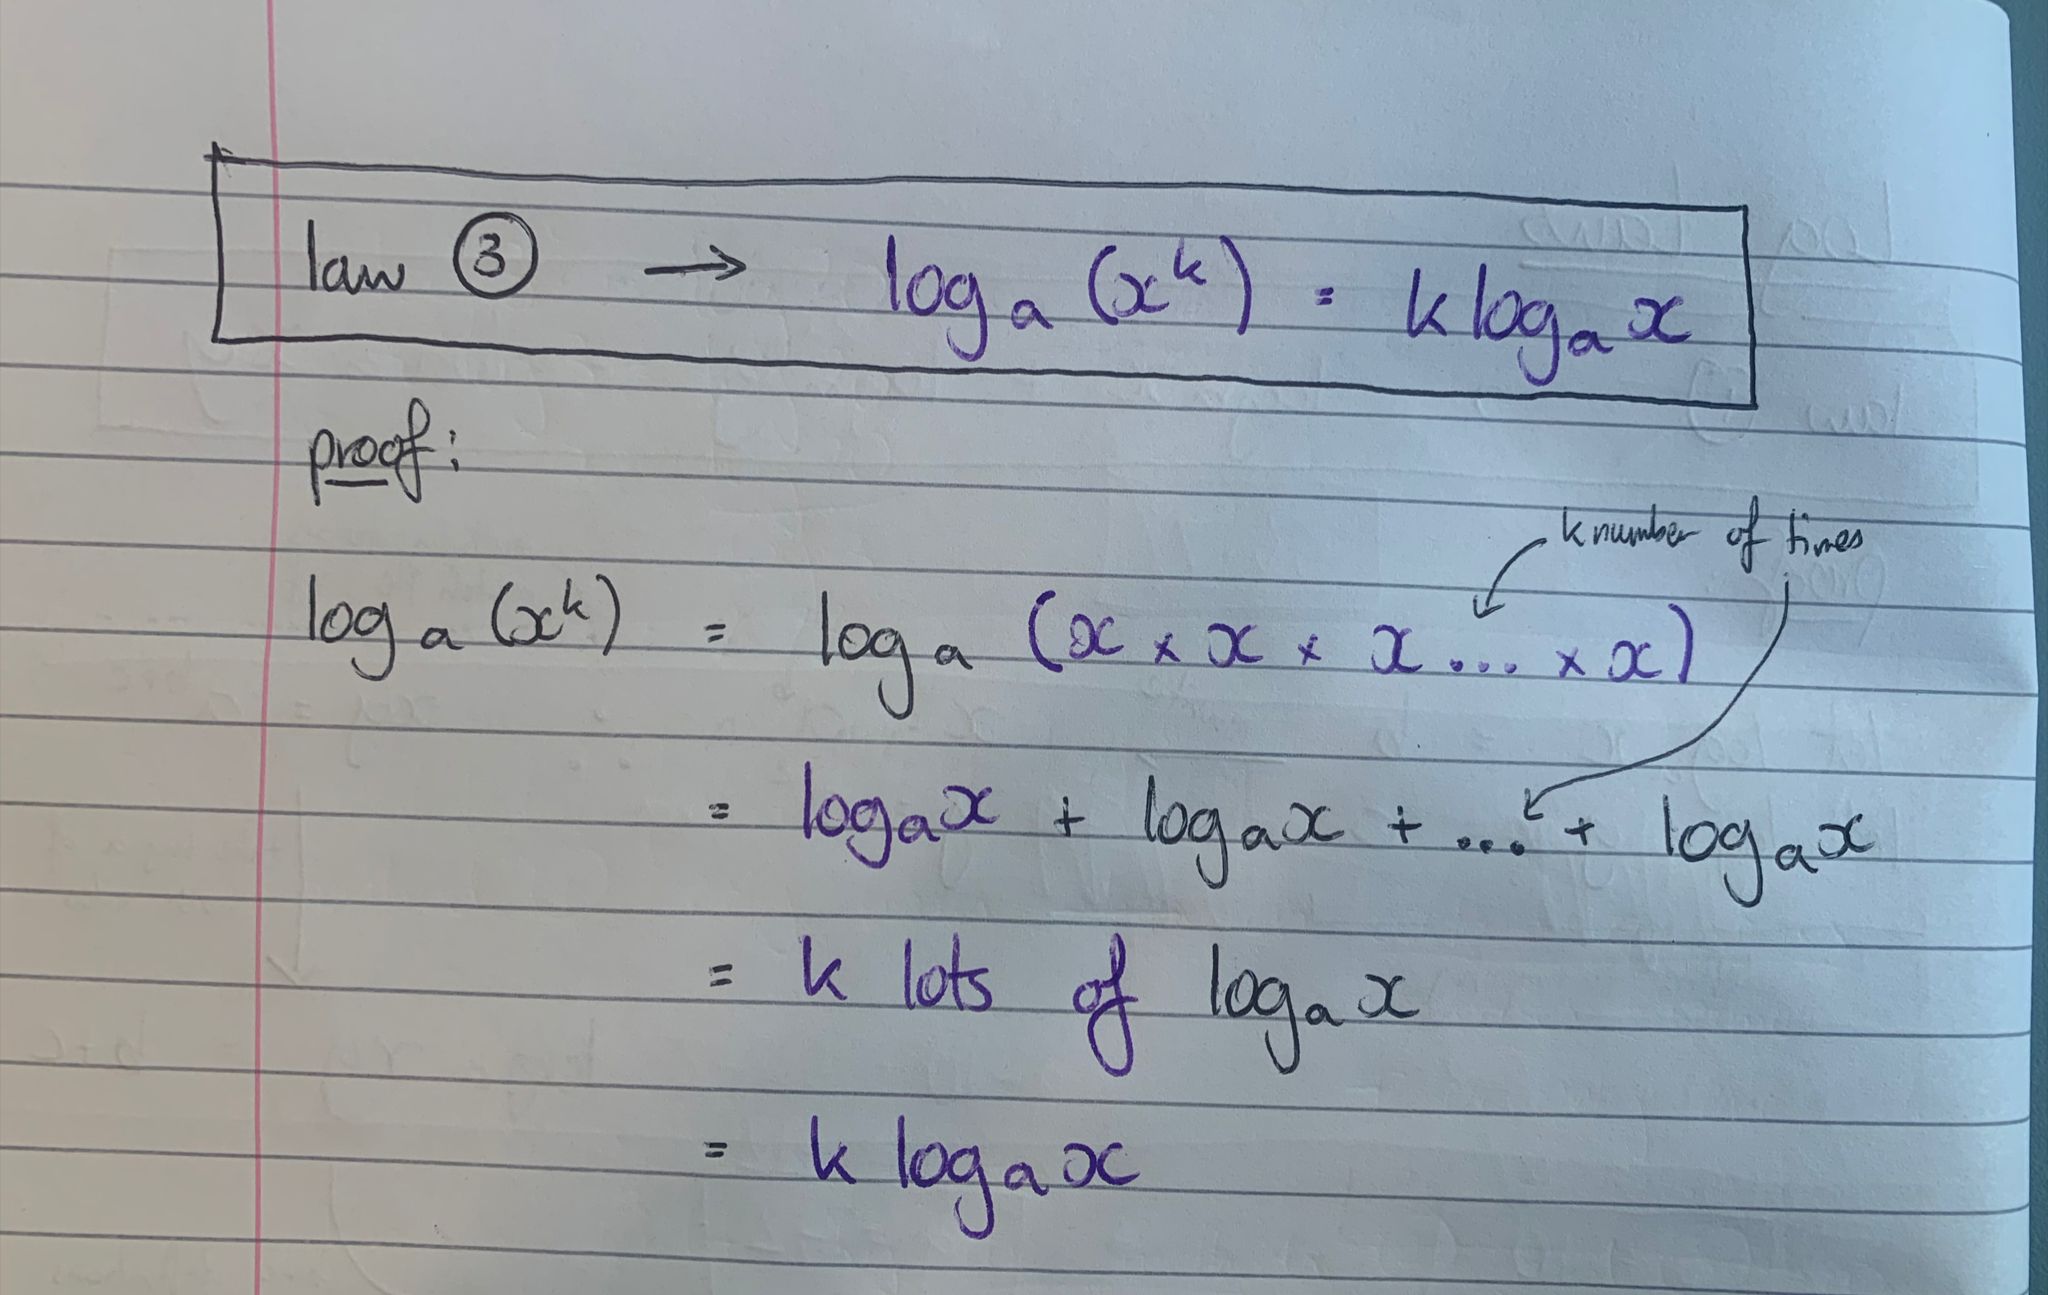 law ③ → logₐ (xᵏ) = k logₐ x
proof:
k number of times
logₐ (xᵏ) = logₐ (x × x × x ... × x)
= logₐ x + logₐ x + ... + logₐ x
= k lots of logₐ x
= k logₐ x